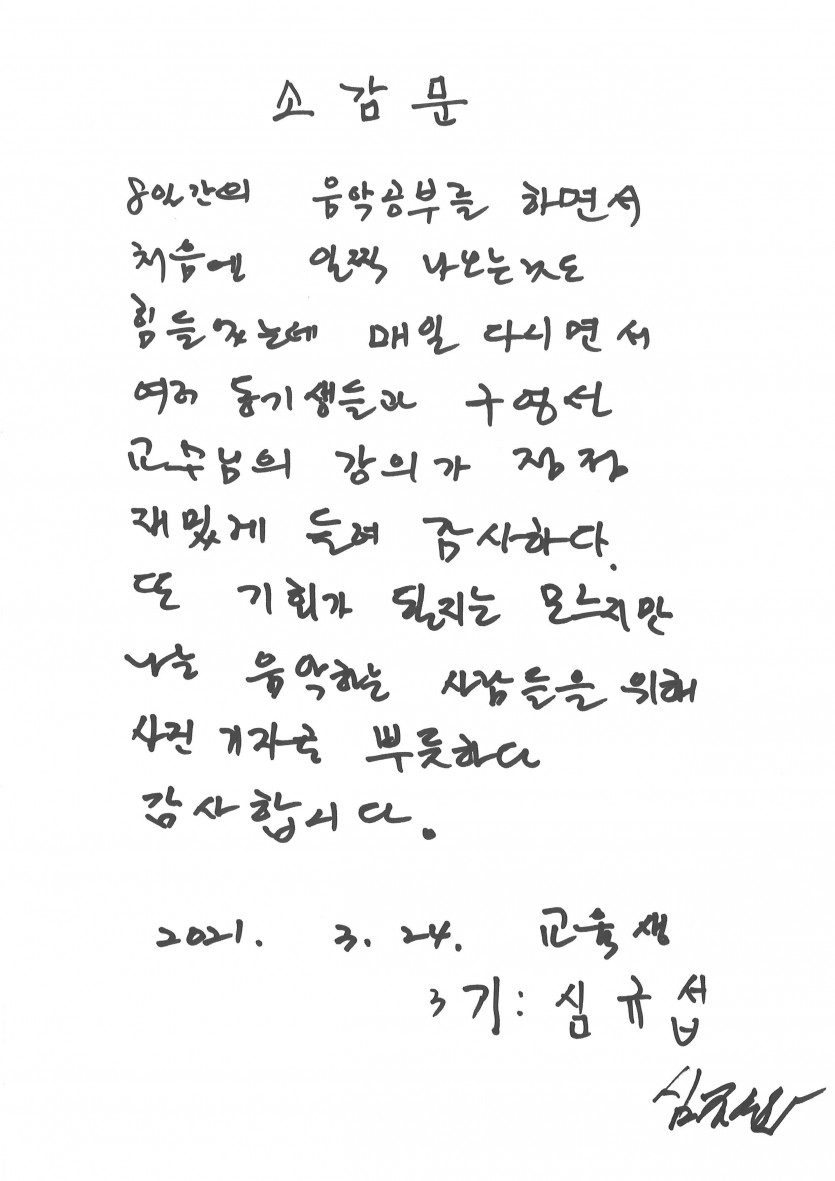 소감문
8일간의 음악공부를 하면서
처음에 일찍 나오는것도
힘들었는데 매일 다시면서
여러 동기생들과 구영선
교수님의 강의가 점점
재밌게 들여 감사하다.
또 기회가 될지는 모르지만
나는 음악하는 사람들을 위해
사진 기자로 뿌듯하다
감사합시다.
2021. 3. 24. 교육생
3기: 심규섭
심규섭